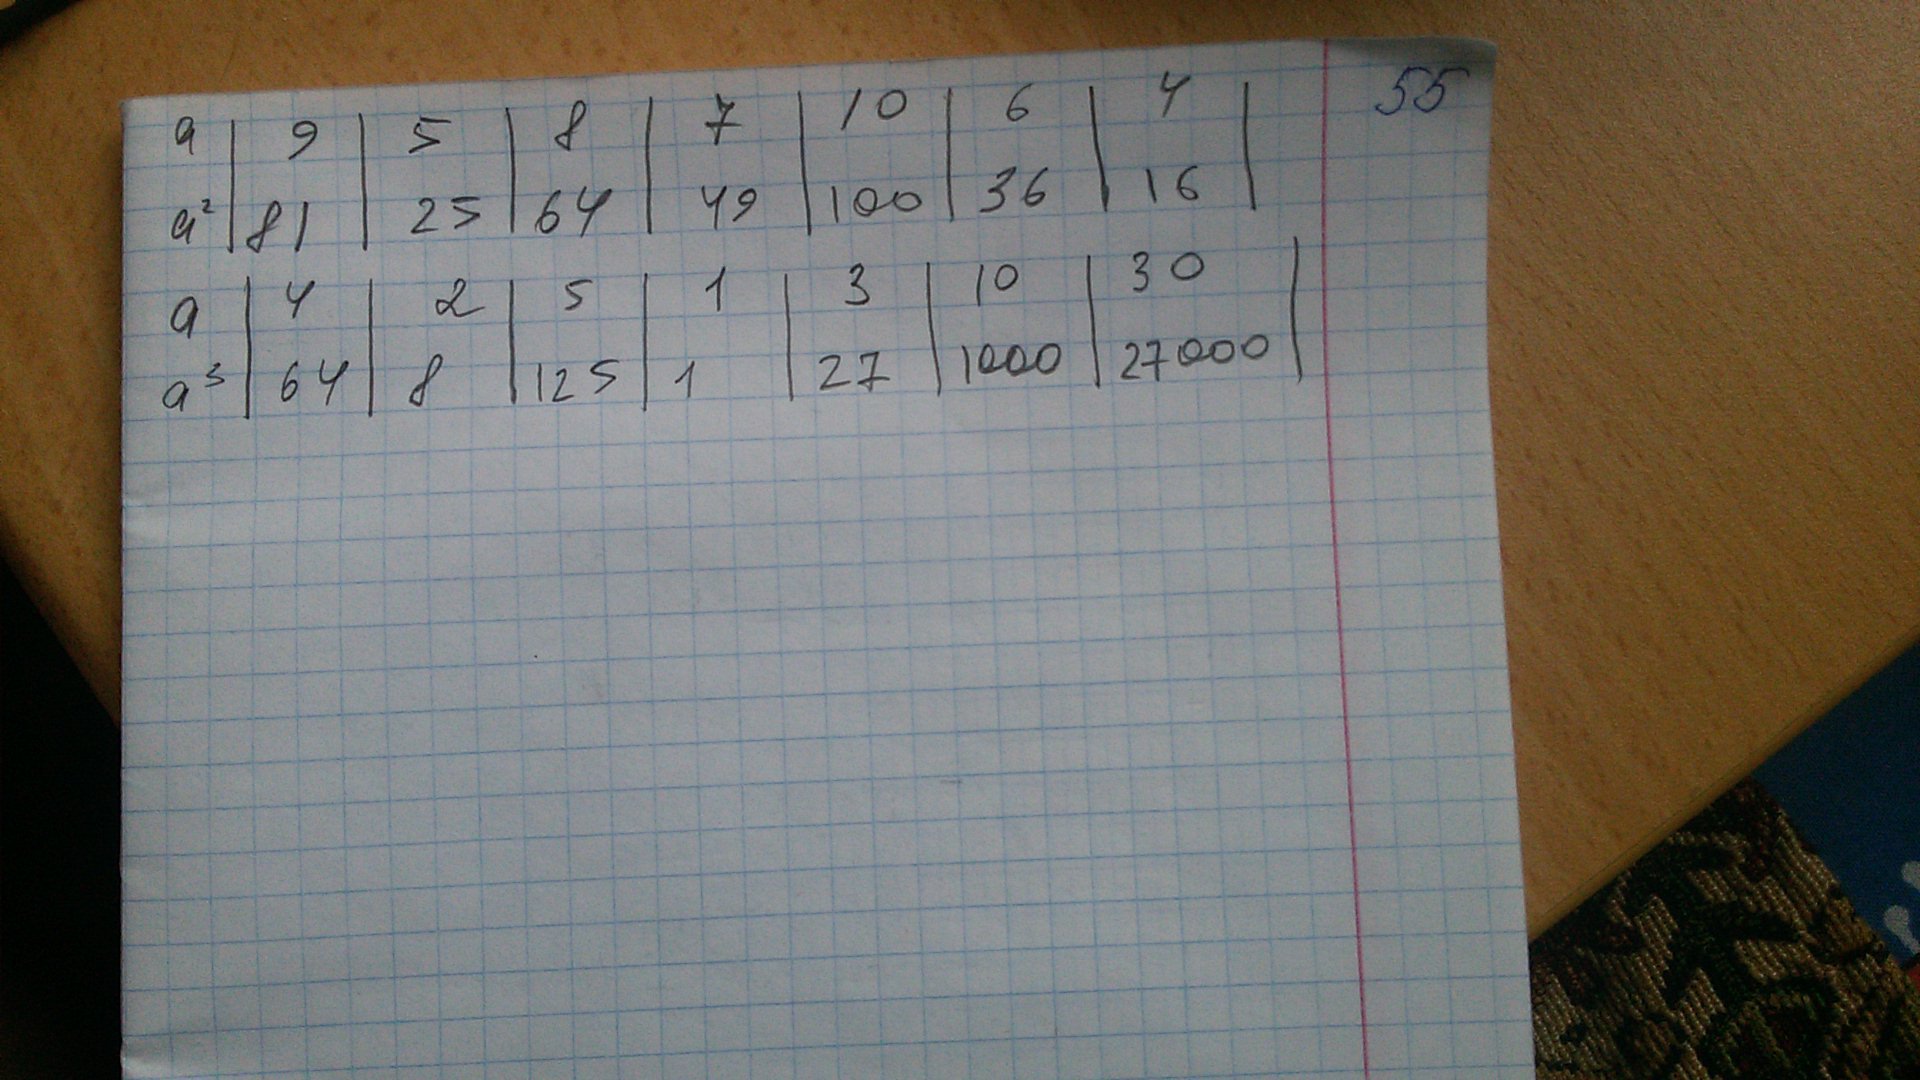 a | 9 | 5 | 8 | 7 | 10 | 6 | 4 | 55
a² | 81 | 25 | 64 | 49 | 100 | 36 | 16 |
a | 4 | 2 | 5 | 1 | 3 | 10 | 30 |
a³ | 64 | 8 | 125 | 1 | 27 | 1000 | 27000 |